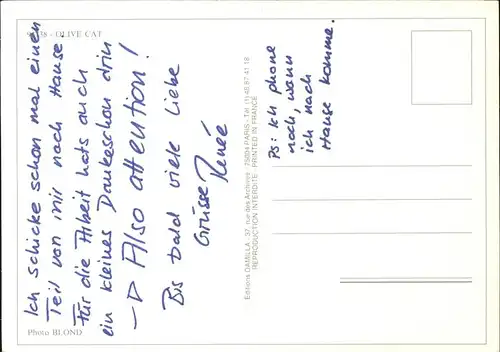 Ich schicke schon mal einen
Teil von mir nach Hause.
Für die Arbeit hats auch
ein kleines Dankeschön drin
→ Also attention!
Bis bald viele liebe
Grüsse Renée
PS: Ich phone
noch, wann
ich nach
Hause komme.
38 - OLIVE CAT
Photo BLOND
Editions DAMILLA : 37, rue des Archives - 75004 PARIS - Tél. (1) 48 87 41 18
REPRODUCTION INTERDITE - PRINTED IN FRANCE